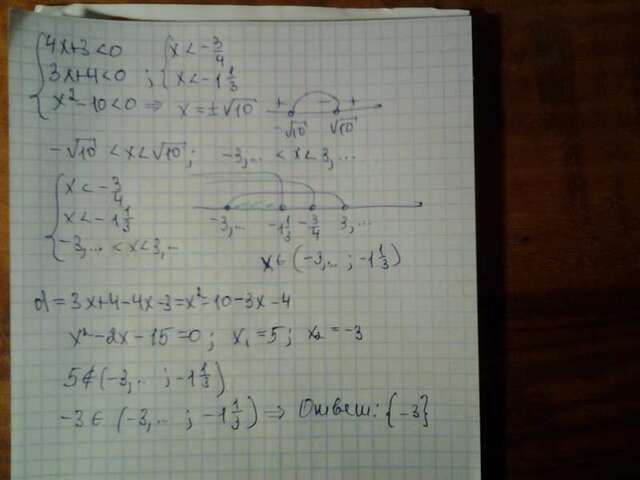 { 4x+3<0 { x<-3/4
3x+4<0 ; x<-1 1/3
x²-10<0 ⇒ x=±√10 + - +
-√10 √10
-√10 <x<√10; -3,... <x<3,...
{ x<-3/4
x<-1 1/3
-3,...<x<3,..
-3,.. -1 1/3 -3/4 3,...
x∈(-3,..; -1 1/3)
d=3x+4-4x-3=x²-10-3x-4
x²-2x-15=0; x₁=5; x₂=-3
5∉(-3,..; -1 1/3)
-3∈(-3,..; -1 1/3) ⇒ Ответ: {-3}